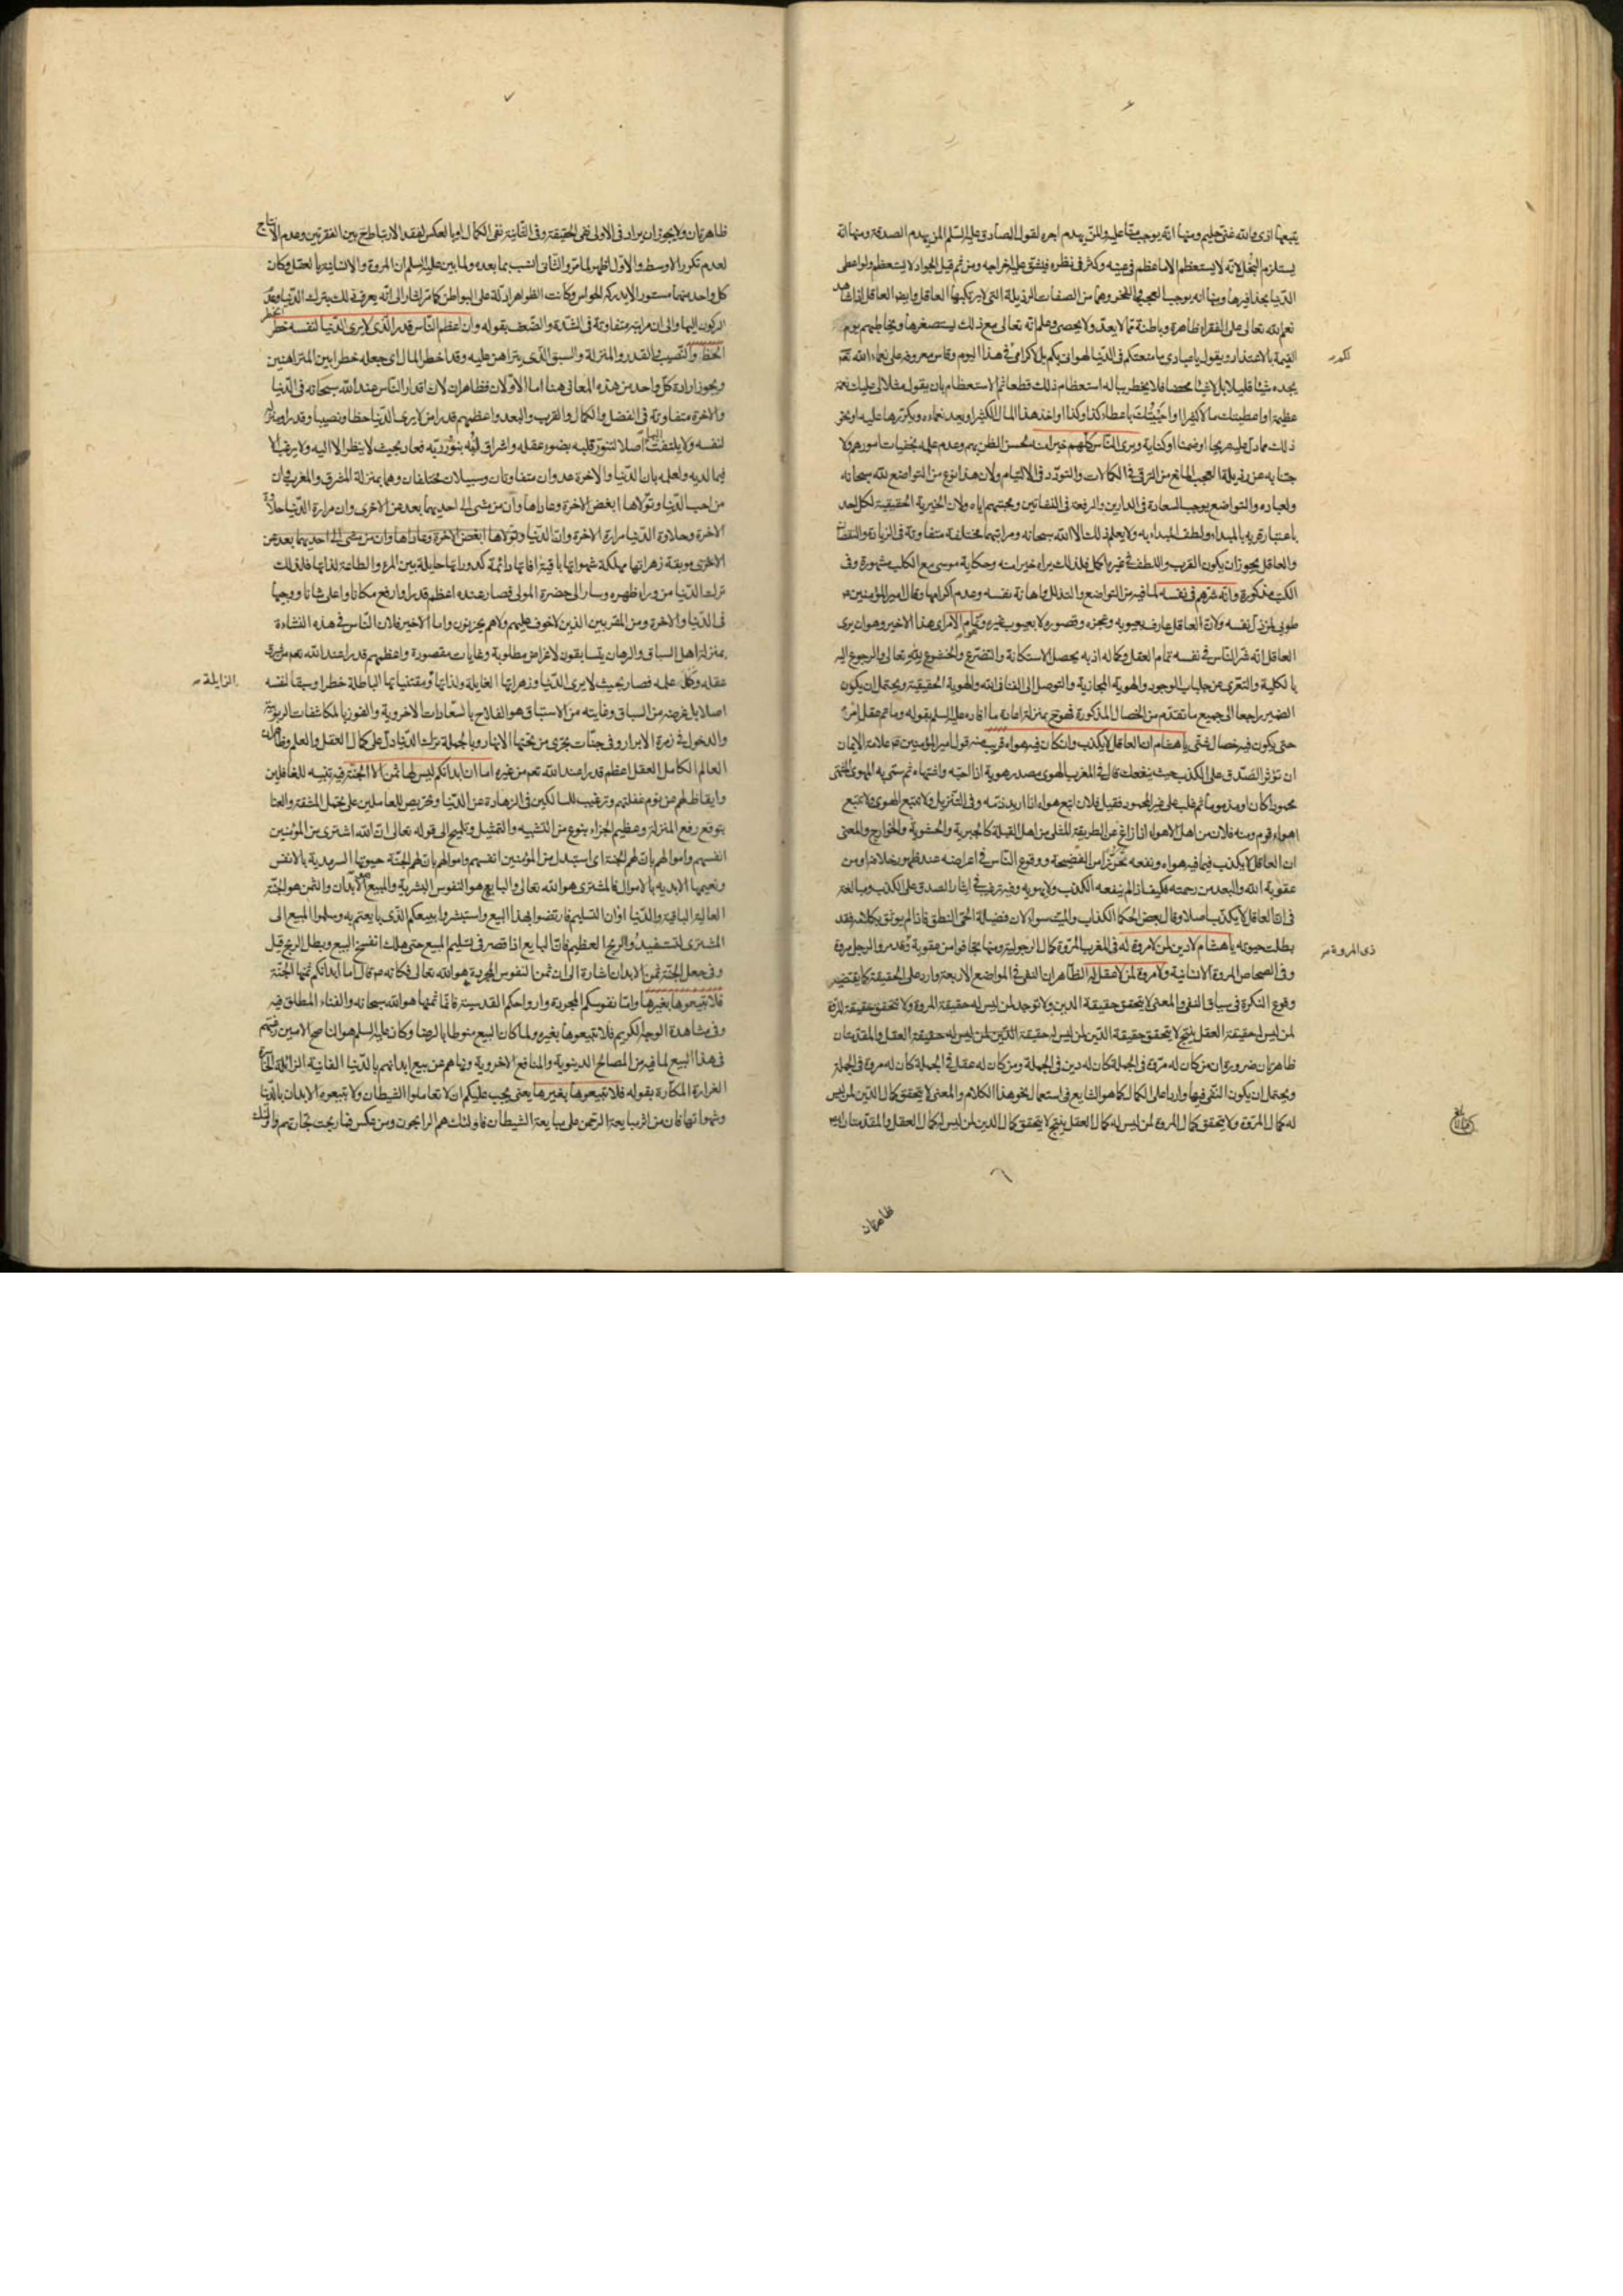 يتبعها اذى والله غنى حليم ومنها انه يوجب مقتا عليه والمن يهدم اجره لقول الصادق عليه السلم المن يهدم الصدقة ومنها انه
يستلزم البخل لانه لا يستعظم الا ما عظم فى عينه وكثر فى نظره فيشق عليه اخراجه ومن ثم قيل الجواد لا يستعظم ولو اعطى
الدنيا بحذافيرها ومنها انه يوجب العجب والفخر وهما من الصفات الرذيلة التى لا يرتكبها العاقل وايضا العاقل اذا شاهد
نعم الله تعالى على الفقراء ظاهرة وباطنة مما لا يعد ولا يحصى وعلم انه تعالى مع ذلك يستصغرها ويخاطبهم يوم
القيمة بالاعتذار ويقول يا عبادى ما منعتكم فى الدنيا لهوانكم بل لاكرامكم فى هذا اليوم وقاس معروفه على نعماء الله
يجده شيئا قليلا بل لا شيئا محضا فلا يخطر بباله استعظام ذلك قطعا ثم الاستعظام بان يقول مثلا لى عليك نعمة
عظيمة او اعطيتك مالا كثيرا او اجبتك باعطاء كذا وكذا او اخذ هذا المال الكثير او يعد نعماءه ويكررها عليه او نحو
ذلك مما دل عليه صريحا او ضمنا او كناية ويرى الناس كلهم خيرا منه لحسن الظن بهم وعدم علمه بخفيات امورهم ولا
جتنابه عن رذيلة العجب المانع من الترقى فى الكمالات والتودد فى الالتيام ولان هذا نوع من التواضع لله سبحانه
ولعباده والتواضع يوجب السعادة فى الدارين والرفعة فى النشأتين ومحبتهم اياه ولان الخيرية الحقيقية لكل احد
باعتبار قربه بالمبدأ ولطف المبدأ به ولا يعلم ذلك الا الله سبحانه ومراتبهما مختلفة متفاوتة فى الزيادة والنقصان
والعاقل يجوز ان يكون القرب واللطف فى غيره اكمل فلذلك يراه خيرا منه وحكاية موسى مع الكلب مشهورة وفى
الكتب مذكورة وانه شرهم فى نفسه لما فيه من التواضع والتذلل واهانة نفسه وعدم اكرامها وقال امير المؤمنين
طوبى لمن ذل نفسه ولان العاقل عارف بعيوبه وعجزه وقصوره لا بعيوب غيره وهو تمام الامر اى هذا الاخير وهو ان يرى
العاقل انه شر الناس فى نفسه تمام العقل وكماله اذ به يحصل الاستكانة والتضرع والخضوع لله تعالى والرجوع اليه
بالكلية والتعرى عن جلباب الوجود والهوية المجازية والتوصل الى الفنا فى الله والهوية الحقيقية ويحتمل ان يكون
الضمير راجعا الى جميع ما تقدم من الخصال المذكورة فهو ح بمنزلة اعادة ما افاده عليه السلم بقوله وما تم عقل امرئ
حتى يكون فيه خصال شتى يا هشام ان العاقل لا يكذب وان كان فيه هواه قريب منه قول امير المؤمنين علامة الايمان
ان تؤثر الصدق على الكذب حيث ينفعك قال فى المغرب الهوى مصدر هويه اذا احبه واشتهاه ثم سمى به المهوى المشتهى
محمودا كان او مذموما ثم غلب على غير المحمود فقيل فلان اتبع هواه اذا اريد ذمه وفى التنزيل ولا تتبع الهوى ولا تتبع
اهواء قوم ومنه فلان من اهل الاهواء اذا زاغ عن الطريقة المثلى من اهل القبلة كالجبرية والحشوية والخوارج والمعنى
ان العاقل لا يكذب فيما فيه هواه ونفعه تحرزا من الفضيحة ووقوع الناس فى اعراضه عند ظهور خلافه ومن
عقوبة الله والبعد من رحمته فكيف اذا لم ينفعه الكذب ولا يهويه وفيه ترغيب فى ايثار الصدق على الكذب ومبالغة
فى ان العاقل لا يكذب اصلا وقال بعض الحكما الكذاب والميت سواء لان فضيلة الحى النطق فاذا لم يوثق بكلامه فقد
بطلت حيوته يا هشام لا دين لمن لا مروة له فى المغرب المروة كمال الرجولية ومنها تجافوا من عقوبة
وفى الصحاح المروة الانسانية ولا مروة لمن لا عقل له الظاهر ان النفى فى المواضع الاربعة وارد على الحقيقة كما يقتضيه
وقوع النكرة فى سياق النفى والمعنى لا يتحقق حقيقة الدين ولا توجد لمن ليس له حقيقة المروة ولا تتحقق حقيقة المروة
لمن ليس له حقيقة العقل ينتج لا يتحقق حقيقة الدين لمن ليس له حقيقة العقل والمقدمتان
ظاهرتان ضرورة ان من كان له مروة فى الجملة كان له دين فى الجملة ومن كان له عقل فى الجملة كان له مروة فى الجملة
ويحتمل ان يكون النفى فيها واردا على الكمال كما هو الشايع فى استعمال نحو هذا الكلام والمعنى لا يتحقق كمال الدين لمن ليس
له كمال المروة ولا يتحقق كمال المروة لمن ليس له كمال العقل ينتج لا يتحقق كمال الدين لمن ليس له كمال العقل والمقدمتان
ظاهرتان
ذى المروة
ظاهرتان ولا يجوز ان يراد فى الاولى نفى الحقيقة وفى الثانية نفى الكمال او بالعكس لفقد الارتباط ح بين الفقرتين وعدم الانتاج
لعدم تكرر الاوسط والاول اظهر لما مر والثانى انسب بما بعده ولما بين عليه السلم ان المروة والانسانية بالعقل وكان
كل واحد منهما مستورا لا يدركه الحواس وكانت الظواهر ادلة على البواطن كما مر اشار الى انه يعرف ذلك بترك الدنيا وعدم
الركون اليها والى ان مراتبه متفاوتة فى الشدة والضعف بقوله وان اعظم الناس قدرا الذى لا يرى الدنيا لنفسه خطرا الخطر
الحظ والنصيب والقدر والمنزلة والسبق الذى يتراهن عليه وقد اخطر المال اى جعله خطرا بين المتراهنين
ويجوز ارادة كل واحد من هذه المعانى هنا اما الاولان فظاهران لان اقدار الناس عند الله سبحانه فى الدنيا
والاخرة متفاوتة فى الفضل والكمال والقرب والبعد واعظمهم قدرا من لا يرى الدنيا حظا ونصيبا وقدرا ومنزلة
لنفسه ولا يلتفت اليها اصلا لتنور قلبه بضوء عقله واشراق لبه بنور ربه فصار بحيث لا ينظر الا اليه ولا يرغب الا
فيما لديه ولعلمه بان الدنيا والاخرة عدوان متفاوتان وسبيلان مختلفان وهما بمنزلة المشرق والمغرب وان
من احب الدنيا وتولاها ابغض الاخرة وعاداها وان من مشى الى احديهما بعد من الاخرى وان مرارة الدنيا حلاوة
الاخرة وحلاوة الدنيا مرارة الاخرة وان الدنيا وتولاها ابغض الاخرة وعاداها وان من مشى الى احديهما بعد من
الاخرى موبقة زهراتها مهلكة شهواتها باقية افاتها دائمة كدوراتها حايلة بين المرء والطاعة لذاتها فلذلك
ترك الدنيا من وراء ظهره وسار الى حضرة المولى فصار عنده اعظم قدرا وارفع مكانا واعلى شانا ووجيها
فى الدنيا والاخرة ومن المقربين الذين لا خوف عليهم ولا هم يحزنون واما الاخير فلان الناس فى هذه النشاءة
بمنزلة اهل السباق والرهان يتسابقون لاغراض مطلوبة وغايات مقصورة واعظمهم قدرا عند الله تعم من
عقله وكمل علمه فصار بحيث لا يرى الدنيا وزهراتها الغايلة ولذاتها ومقتنياتها الباطلة خطرا وسبقا لنفسه
الزايلة
اصلا بل غرضه من السباق وغايته من الاستباق هو الفلاح بالسعادات الاخروية والفوز بالمكاشفات الربوبية
والدخول فى زمرة الابرار وفى جنات تجرى من تحتها الانهار وبالجملة ترك الدنيا دل على كمال العقل والعلم وظاهر ان
العالم الكامل العقل اعظم قدرا عند الله تعم من غيره اما ان ابدانكم ليس لها ثمن الا الجنة فيه تنبيه للغافلين
وايقاظ لهم عن نوم غفلتهم وترغيب للسالكين فى الزهادة عن الدنيا وتحريص للعاملين على تحمل المشقة والعنا
بتوقع رفع المنزلة وعظيم الجزاء بنوع من التشبيه والتمثيل وتلميح الى قوله تعالى ان الله اشترى من المؤمنين
انفسهم واموالهم بان لهم الجنة اى استبدل من المؤمنين انفسهم واموالهم بان لهم الجنة حيوتها السرمدية بالانفس
ونعيمها الابدية بالاموال فالمشترى هو الله تعالى والبايع هو النفوس البشرية والمبيع هو الابدان والثمن هو الجنة
العالية الباقية والدنيا اوان التسليم فارتضوا بهذا البيع واستبشروا ببيعكم الذى بايعتم به وسلموا المبيع الى
المشترى لتستفيدوا الربح العظيم فان البايع اذا قصر فى تسليم المبيع حتى هلك انفسخ البيع وبطل الربح قيل
وفى جعل الجنة ثمن الابدان اشارة الى ان ثمن النفوس المجردة هو الله تعالى فكانه عم قال اما ابدانكم ثمنها الجنة
فلا تبيعوها بغيرها واما نفوسكم المجردة وارواحكم القدسية فانما ثمنها هو الله سبحانه والفناء المطلق فيه
وفى مشاهدة الوجه الكريم فلا تبيعوها بغيره ولما كان البيع منوطا بالرضا وكان عليه السلم هو الناصح الامين
فى هذا البيع لما فيه من المصالح الدينوية والمنافع الاخروية ونهاهم عن بيع ابدانهم بالدنيا الفانية الزائلة
الغرارة المكارة بقوله فلا تبيعوها بغيرها يعنى يجب عليكم ان لا تعاملوا الشيطان ولا تبيعوه الابدان بالدنيا
وشهواتها فان من اثر مبايعة الرحمن على مبايعة الشيطان فاولئك هم الرابحون ومن عكس فما ربحت تجارتهم